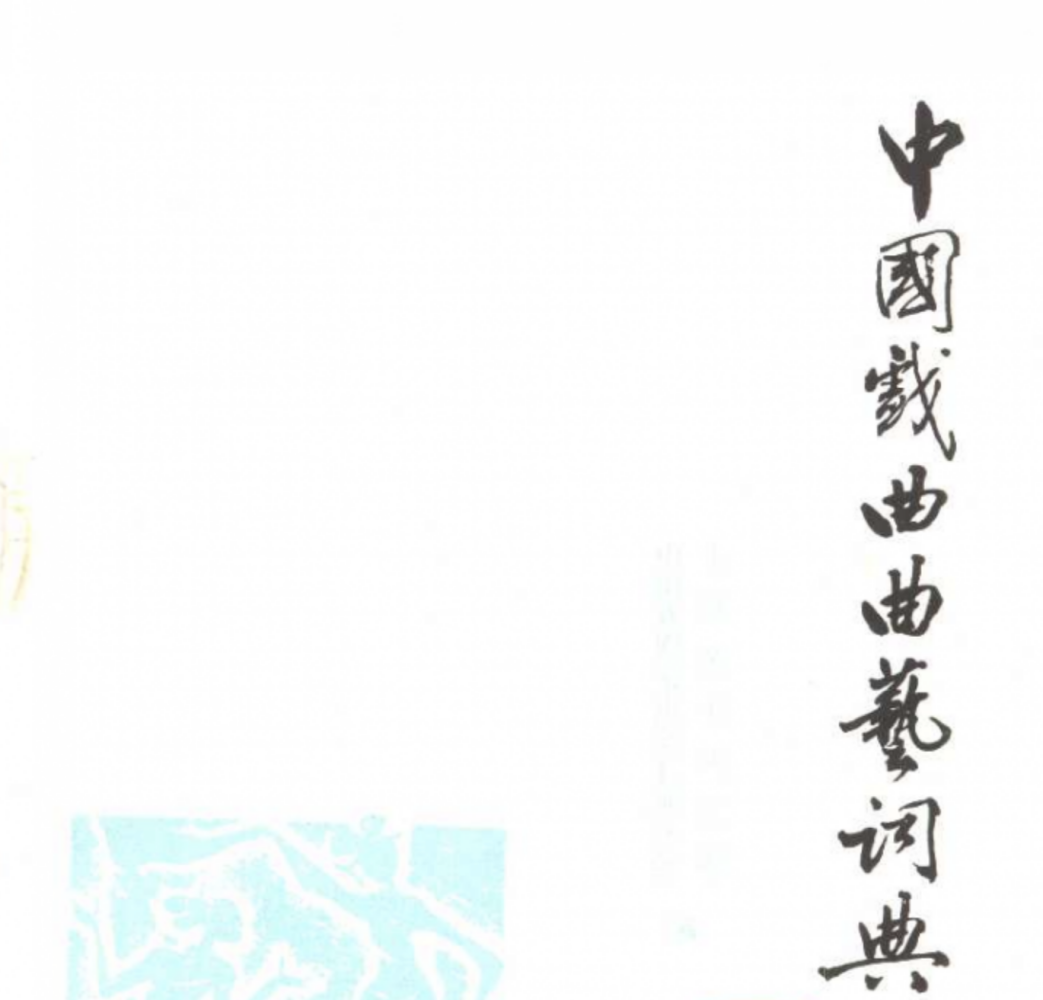 中國戲曲曲藝詞典